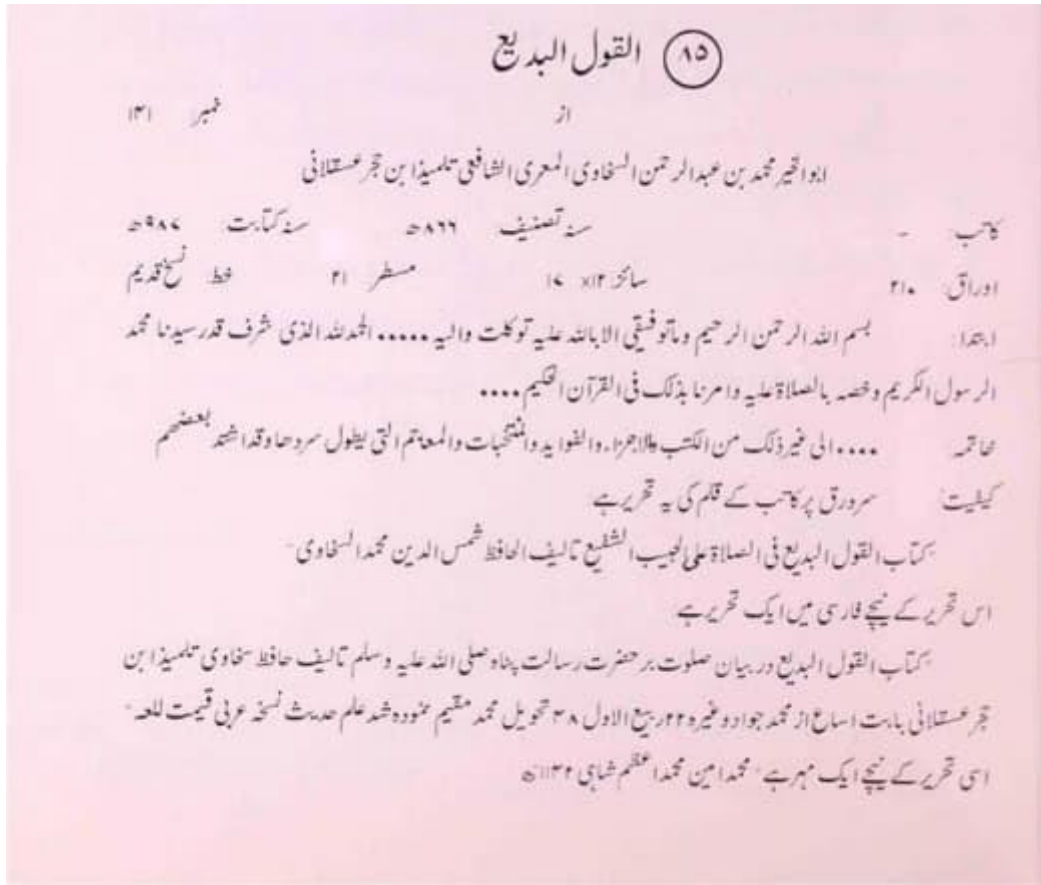 ۸۵ القول البدیع
از نمبر ۱۴۱
ابوالخیر محمد بن عبدالرحمن السخاوی المعری الشافعی تلمیذ ابن حجر عسقلانی
کاتب - سنہ تصنیف ۸۶۶ھ سنہ کتابت: ۹۸۷ھ
اوراق: ۲۱۰ سائز: ۱۲× ۱۷ مسطر: ۲۱ خط: نسخ قدیم
ابتدا: بسم اللہ الرحمن الرحیم وماتوفیقی الا باللہ علیہ توکلت والیہ ..... الحمدللہ الذی شرف قدر سیدنا محمد
الرسول الکریم وخصہ بالصلاۃ علیہ وامرنا بذلک فی القرآن الحکیم ....
خاتمہ .... الی غیر ذلک من الکتب والاجزاء والفواید والمنتخبات والمعاجم التی یطول سردھا وقد اشتد بعضھم
کیفیت: سرورق پر کاتب کے قلم کی یہ تحریر ہے
"کتاب القول البدیع فی الصلاۃ علی الحبیب الشفیع تالیف الحافظ شمس الدین محمد السخاوی"
اس تحریر کے نیچے فارسی میں ایک تحریر ہے
"کتاب القول البدیع در بیان صلوت بر حضرت رسالت پناہ صلی اللہ علیہ وسلم تالیف حافظ سخاوی تلمیذ ابن
حجر عسقلانی بابت اسباع از محمد جواد وغیرہ ۲۲ ربیع الاول ۴۸ تحویل محمد مقیم نمودہ شد علم حدیث نسخہ عربی قیمت للعہ"
اسی تحریر کے نیچے ایک مہر ہے "محمد امین محمد اعظم شاہی ۱۱۳۲ھ